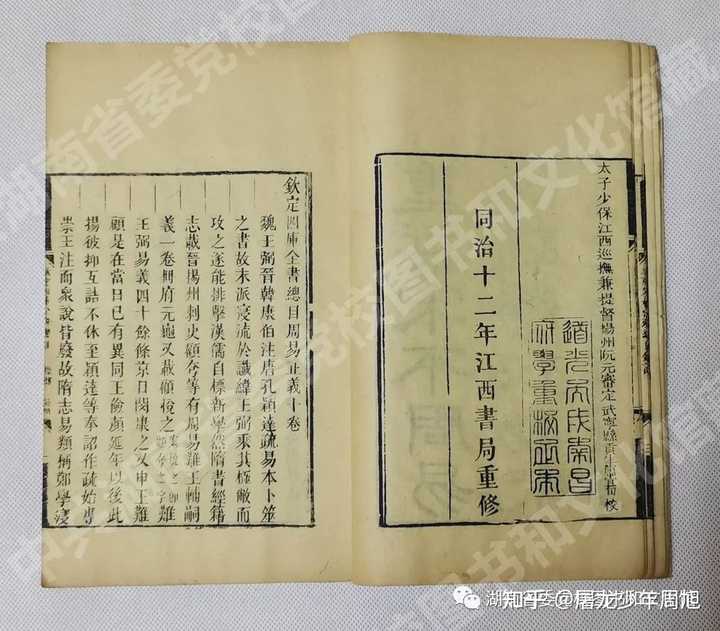 太子少保江西巡撫兼提督揚州阮元審定武寧縣貢生校
道光丙戌南昌
府學重校正本
同治十二年江西書局重修
欽定四庫全書總目周易正義十卷
魏王弼晉韓康伯注唐孔穎達疏易本卜筮
之書故末派寖流於讖緯王弼乘其極敝而
攻之遂能排擊漢儒自標新學然隋書經籍
志載晉揚州刺史顧夸等有周易難王輔嗣
義一卷冊府元龜又載顧悅之案悅之即顧夸之字難
王弼易義四十餘條京口閔康之又申王難
顧是在當日已有異同王儉顏延年以後此
揚彼抑互詰不休至穎達等奉詔作疏始專
崇王注而衆說皆廢故隋志易類稱鄭學寖
湖南省委党校图书和文化馆藏
知乎 @屠龙少年周旭